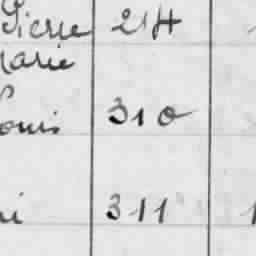 Pierre 214
Marie
Louis 310
311